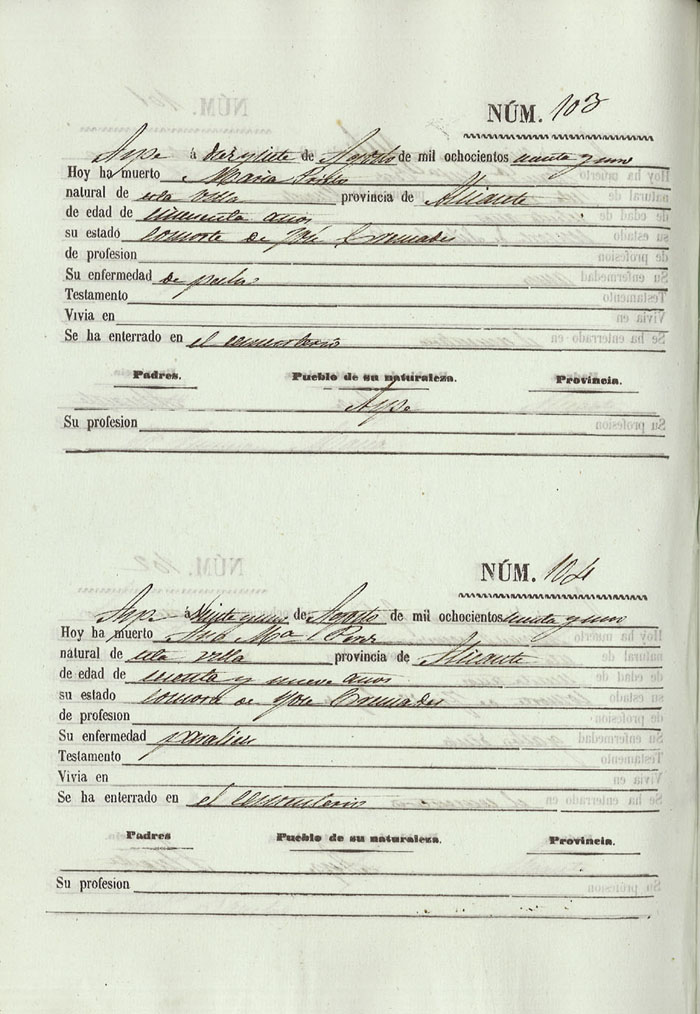 NÚM. 103
Aspe á diez y siete de Agosto de mil ochocientos y uno
Hoy ha muerto Maria
natural de esta villa provincia de Alicante
de edad de cincuenta años
su estado consorte de José Cremades
de profesion
Su enfermedad de
Testamento
Vivia en
Se ha enterrado en el cementerio
Padres. Pueblo de su naturaleza. Provincia.
Aspe
Su profesion
NÚM. 104
Aspe á veinte y uno de Agosto de mil ochocientos y uno
Hoy ha muerto Ana Mª Perez
natural de esta villa provincia de Alicante
de edad de y nueve años
su estado de José Cremades
de profesion
Su enfermedad
Testamento
Vivia en
Se ha enterrado en el cementerio
Padres Pueblo de su naturaleza. Provincia.
Su profesion